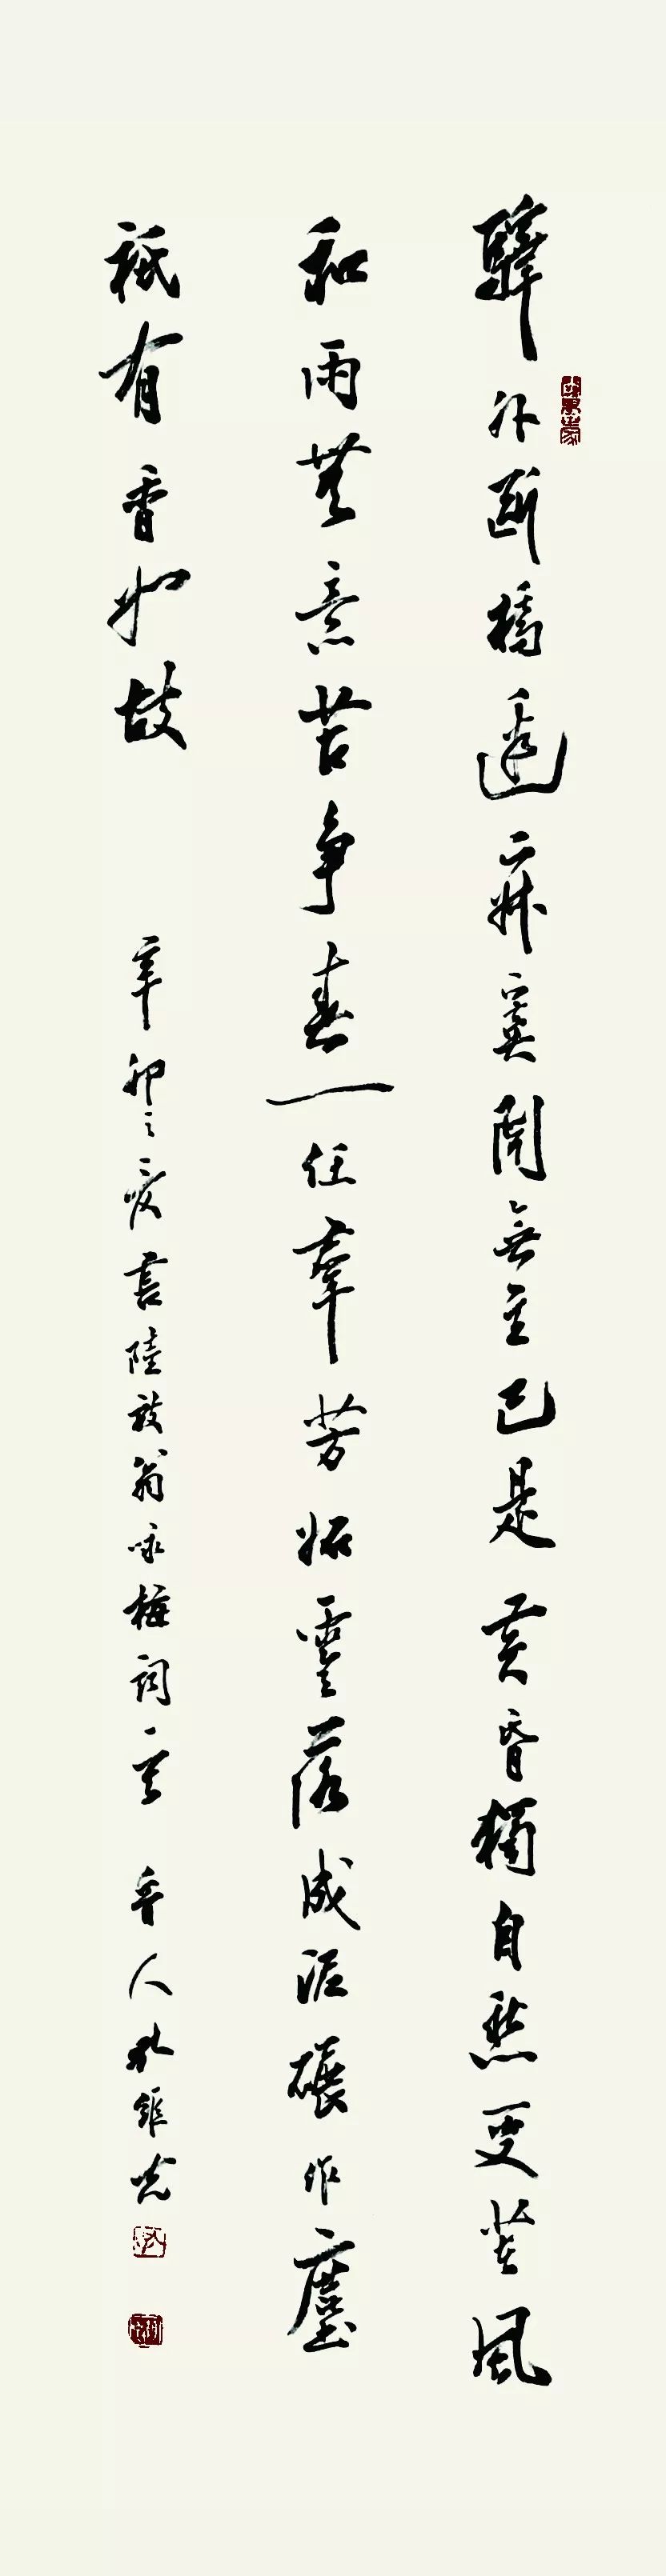 驛外斷橋邊寂寞開無主已是黄昏獨自愁更著風
和雨無意苦爭春一任羣芳妬零落成泥碾作塵
祇有香如故
辛卯之夏書陸放翁咏梅詞一首 魯人孔維克